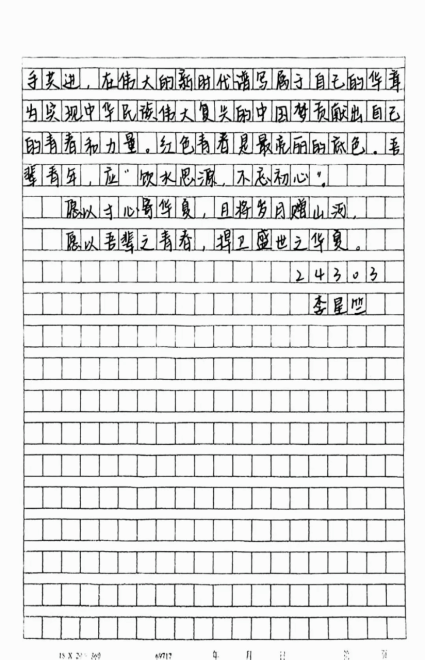 手共进，在伟大的新时代谱写属于自己的华章
为实现中华民族伟大复兴的中国梦贡献出自己
的青春和力量。红色青春是最亮丽的底色。吾
辈青年，应“饮水思源，不忘初心”。
愿以寸心寄华夏，且将岁月赠山河，
愿以吾辈之青春，捍卫盛世之华夏。
24303
李星
年 月 日 第 页